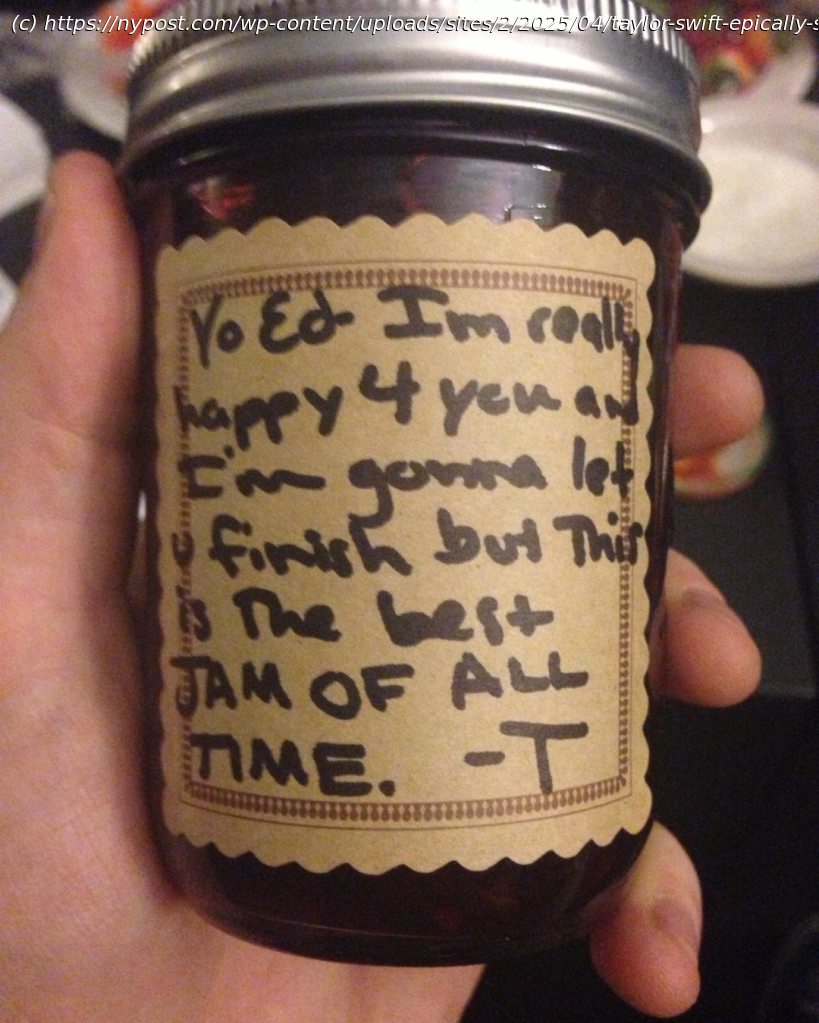 (c) https://nypost.com/wp-content/uploads/sites/2/2025/04/taylor-swift-epically-s
Yo Ed I'm really
happy 4 you and
I'm gonna let
U finish but This
is The best
JAM OF ALL
TIME. -T